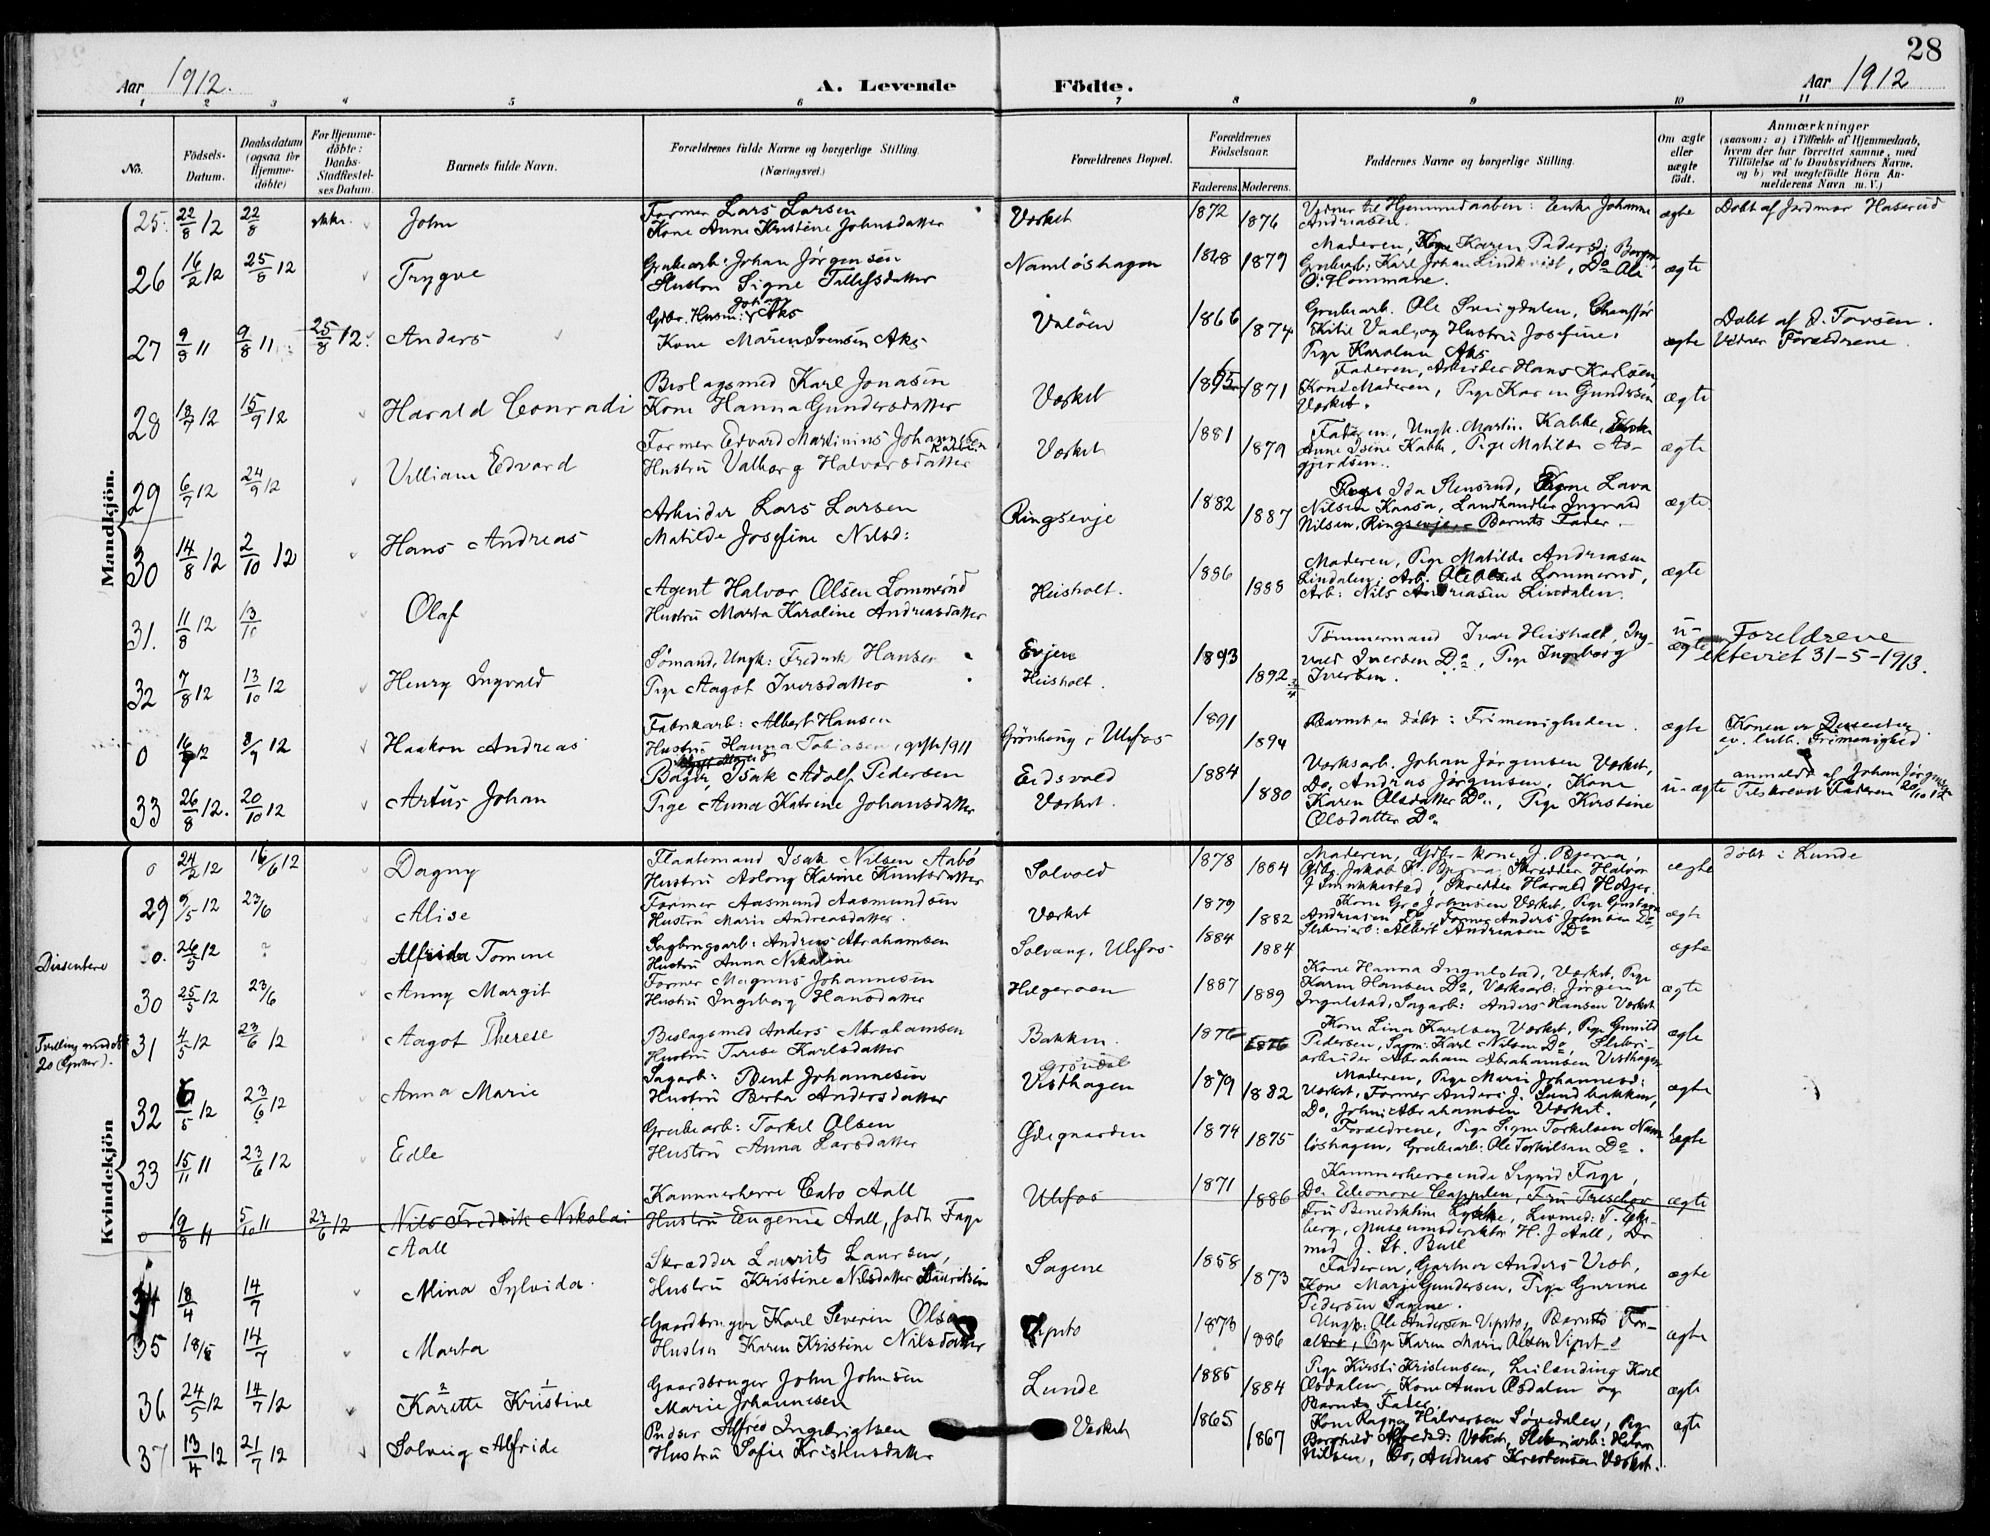 28
Aar 1912.
A. Levende
Födte.
Aar 1912
1 2 3 4 5 6 7 8 9 10 11
No.
Födsels-
Datum.
Daabsdatum
(ogsaa for
Hjemme-
döbte)
For Hjemme-
döbte:
Daabs-
Stadfæstel-
ses Datum.
Barnets fulde Navn.
Forældrenes fulde Navne og borgerlige Stilling.
(Næringsvei.)
Forældrenes Bopæl.
Forældrenes
Födselsaar.
Faderens. Moderens.
Faddernes Navne og borgerlige Stilling.
Om ægte
eller
uægte
födt.
Anmærkninger
(saasom: a) i Tilfælde af Hjemmedaab,
hvem der har forrettet samme, med
Tilföielse af to Daabsvidners Navne,
og b) ved uægtefödte Börn An-
melderens Navn m. V.)
Mandkjön.
25. 22/8 12 22/8 John
Former Lars Larsen
Kone Anne Kristine Johnsdatter
Værket 1872 1876
Vidner til Hjemmedaaben: Enke Johanne
Andreasen.
ægte Døbt af Jordmor Haserud
26 16/2 12 25/8 12 Trygve
Grubearb: Johan Jørgensen
Hustru Signe Tellefsdatter
Namløshagen 1879
Moderen, Karen
Grubearb: Karl Johan Lindkvist, Do Ole
O. Hommane.
ægte
27 9/8 11 9/8 11 25/8 12. Anders
Johan
Gdbr. Husm: Aks
Kone Maren Svensen Aks
Valøen 1866 1874
Grubearb. Ole Svingdalen, Chauffør
Kitil Vaal, og Hustru Josefine,
Pige Karoline Aks
ægte Døbt af O. Torsen.
Vidner Forældrene.
28 18/7 12 15/9 12 Harald Conradi
Beslagsmed Karl Jonasen
Kone Hanna Gundersdatter
Værket 1871
Faderen, Arbeider Hans Karlsen,
Kone Moderen, Pige Karen Gundersen
Værket.
ægte
29 6/7 12 24/9 12 Villiam Edvard
Former Edvard Martinius Johannesen
Kabbe
Hustru Valborg Halvorsdatter
Værket 1881 1879
Faderen, Ungk. Martin Kabbe,
Anne Isine Kabbe, Pige Matilde As-
gjerdsen.
ægte
30 14/8 12 2/10 12 Hans Andreas
Arbeider Lars Larsen
Matilde Josefine Nilsd:
Ringsevje 1882 1887
Pige Ida Stensrud, Pigene Lava
Nilsen Kaasa, Landhandler Ingvald
Nilsen, Ringsevje, Barnets Fader.
ægte
31. 11/8 12 13/10 Olaf
Agent Halvor Olsen Lommerud
Hustru Marta Karoline Andreasdatter
Heisholt. 1886 1888
Moderen, Pige Matilde Andreasen
Lindalen, Arb. Ole Olsen Lommerud,
Arb: Nils Andreasen Lindalen.
ægte
32 7/8 12 13/10 12 Henry Ingvald
Sømand, Ungk: Fredrik Hansen
Pige Aagot Iversdatter
Evjen
Heisholt. 1893 1892 3/4
Tømmermand Iver Heisholt, Ing-
vald Iversen Do, Pige Ingeborg
Iversen.
u-
ægte
Foreldrene
ekteviet 31-5-1913.
0 16/7 12 8/9 12 Haakon Andreas
Fabrikarb: Albert Hansen
Hustru Hanna Tobiasen, gifte 1911
Grönhaug, Ulefos 1891 1894
Barnet er døbt i Frimenigheden.
ægte
Konen er Dissenter
ev. luth. Frimenighed
33 26/8 12. 20/10 12 Artur Johan
Bager, Isak Adolf Pedersen
Pige Anna Katrine Johansdatter
Eidsvold
Værket. 1884 1880
Værksarb. Johan Jørgensen Værket,
Do, Andreas Jørgensen, Kone
Karen Olsdatter Do., Pige Kirstine
Olsdatter Do
u-ægte
anmeldt af Johan Jørgensen
Tilskrevet Faderen 20/10 12
Kvindekjön
0 24/2 12 16/6 12 Dagny
Flaatemand Isak Nilsen Aabø
Hustru Aslaug Karine Knutsdatter
Solvold 1878 1884
Moderen, Gdbr-kone J. Bjerva,
Gdbr. Jakob P. Bjerva, Skrædder Halvor
J. Smukkestad, Skrædder Harald Holtger
ægte døbt i Lunde
29 9/5 12 23/6 Alise
Former Aasmund Aasmundsen
Hustru Marie Andreasdatter.
Værket 1879 1882
Kone Gro Johnsen Værket, Pige Gustava
Andreasen Do, Former Anders Johnsen Do,
Sliberiarb: Albert Andreasen Do
ægte
Dissentere
0. 26/5 12 ? Alfrida Tomine
Sagbrugsarb: Andreas Abrahamsen
Hustru Anna Nikoline
Solvang, Ulefos 1884 1884
ægte
30 25/5 12 23/6 Anny Margit
Former Magnus Johannesen
Hustru Ingeborg Hansdatter
Helgeroen 1887 1889
Kone Hanna Ingulstad, Værket, Pige
Karen Hansen Do, Værksarb: Jørgen
Ingulstad, Sagarb: Anders Hansen Værket
ægte
Tvilling med No
20 (Gutter).
31 4/5 12 23/6 12 Aagot Therese
Beslagsmed Anders Abrahamsen
Hustru Terese Karlsdatter
Bakken. 1876 1876
Kone Lina Karlsen Værket, Pige Gunild
Pedersen, Sagm: Karl Nilsen Do, Sliberi-
arbeider Abraham Abrahamsen Visthagen
ægte
32 6/5 12 23/6 12 Anna Marie
Sagarb: Bent Johannesen
Hustru Berta Andersdatter
Grøndal
Visthagen 1879 1882
Moderen, Pige Marie Johannesd:
Værket, Former Anders J. Sundbakken,
Do, John Abrahamsen Værket.
ægte
33 15/11 11 23/6 12 Edle
Grubearb: Torkel Olsen
Hustru Anna Larsdatter
Ødegaarden 1874 1875
Forældrene, Pige Signe Torkilsen Nam-
løshagen, Grubearb: Ole Torkilsen Do.
ægte
0 19/8 11 5/10 11 23/6 12 Nils Fredrik Nikolai
Aall
Kammerherre Cato Aall
Hustru Eugenie Aall, født Faye
Ulefos 1871 1886
Kammerherreinde Sigrid Faye,
Do. Eleonore Cappelen, Fru Treschow
Fru Benedikline Lykke, Livmed: T. Eke-
berg, Museumsdirektør H. J. Aall, Dr
med J. St. Bull
ægte
34 18/4 14/7 Mina Sylvida.
Skrædder Laurits Laursen,
Hustru Kristine Nilsdatter Lauritsen
Sagene 1858 1873
Faderen, Gartner Anders Vest,
Kone Marje Gundersen, Pige Gurine
Pedersen Sagene.
ægte
35 18/5 14/7 Marta
Gaardbruger Karl Severin Olsen
Hustru Karen Kristine Nilsdatter
Vipeto 1873 1886
Ungk: Ole Andersen Vipeto, Barnets For-
ældre, Pige Karen Marie Olsen Vipeto
ægte
36 24/5 12 14/7 12 Karette Kristine
2 1
Gaardbruger John Johnsen
Marie Johannesen
Lunde 1885 1884
Pige Kirsti Kristensen, Leilænding Karl
Øsdalen, Kone Anne Øsdalen og
Barnets Fader.
ægte
37 13/4 12 21/7 12 Solveig Alfride
Pudser Alfred Ingebrigtsen
Hustru Sofie Kristensdatter
Værket 1865 1867
Kone Ragna Halvorsen Søvedalen, Pige
Borghild Alfredsd: Værket, Sliberiarb: Halvor
Nilsen, Do, Andreas Kristensen Værket.
ægte